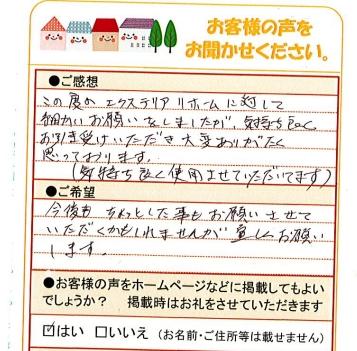 お客様の声を
お聞かせください。
●ご感想
この度の エクステリア リホームに対して
細かいお願いをしましたが、気持ち良く
お引き受けいただき大変ありがたく
思っております。
(気持ち良く使用させていただいてます)
●ご希望
今後も ちょっとした事もお願いさせて
いただくかもしれませんが宜しくお願い
します。
●お客様の声をホームページなどに掲載してもよい
でしょうか？ 掲載時はお礼をさせていただきます
☑はい ☐いいえ (お名前･ご住所等は載せません)